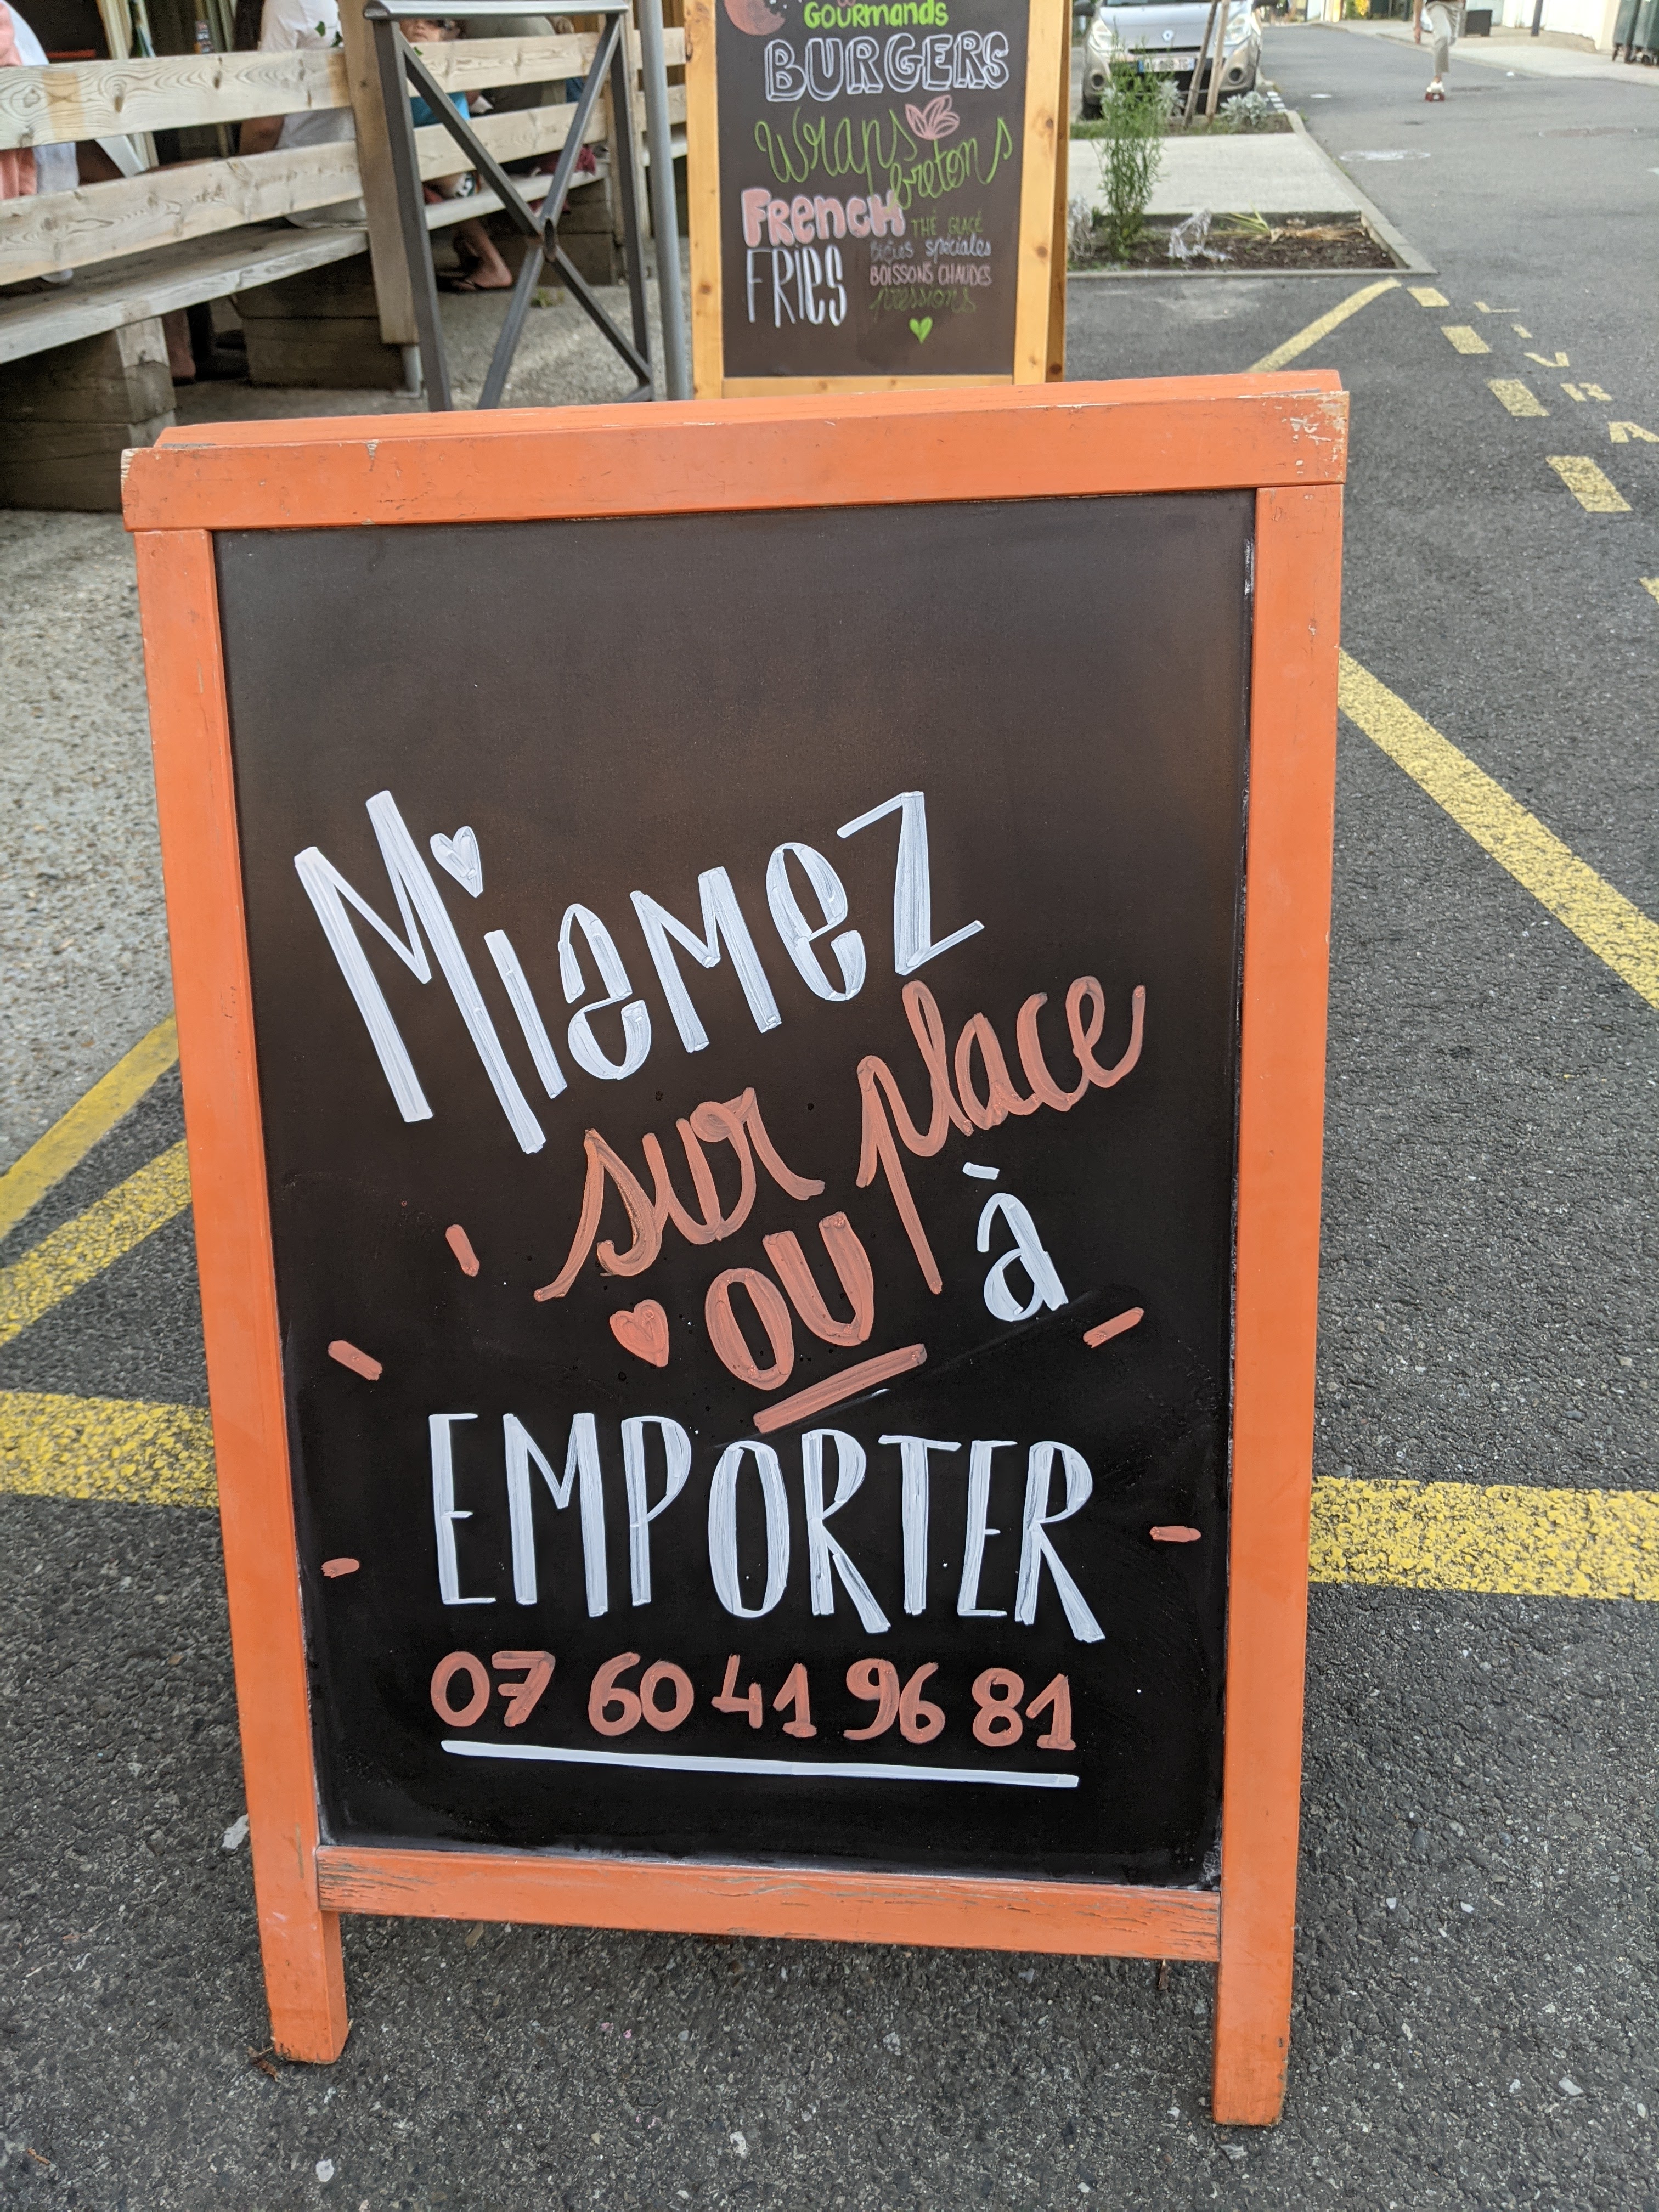 Gourmands
BURGERS
Wraps
bretons
FRENCH
FRIES
THÉ GLACÉ
Bières spéciales
BOISSONS CHAUDES
pressions
Miamez
sur place
ou à
EMPORTER
07 60 41 96 81